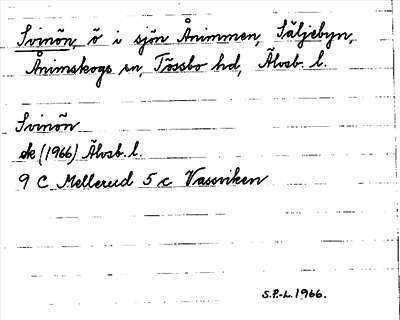 Svinön, ö i sjön Ånimmen, Säljebyn,
Ånimskogs sn, Tössbo hd, Älvsb. l.
Svinön
ek (1966) Älvsb. l.
9 C Mellerud 5 c Vassviken
S.P.-L. 1966.